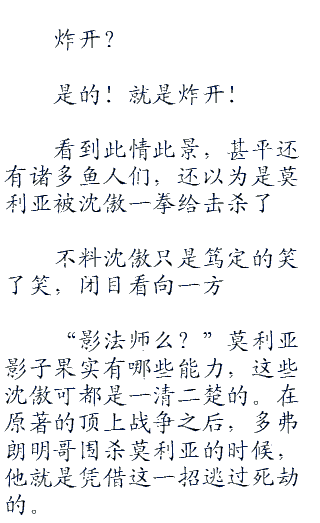 炸开？
是的！就是炸开！
看到此情此景，甚平还
有诸多鱼人们，还以为是莫
利亚被沈傲一拳给击杀了
不料沈傲只是笃定的笑
了笑，闭目看向一方
“影法师么？”莫利亚
影子果实有哪些能力，这些
沈傲可都是一清二楚的。在
原著的顶上战争之后，多弗
朗明哥围杀莫利亚的时候，
他就是凭借这一招逃过死劫
的。